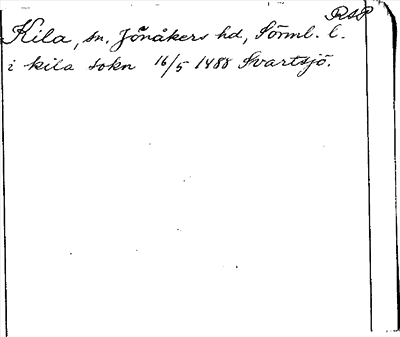 RAP
Kila, sn. Jönåkers hd, Sörml. l.
i kila sokn 16/5 1488 Svartsjö.